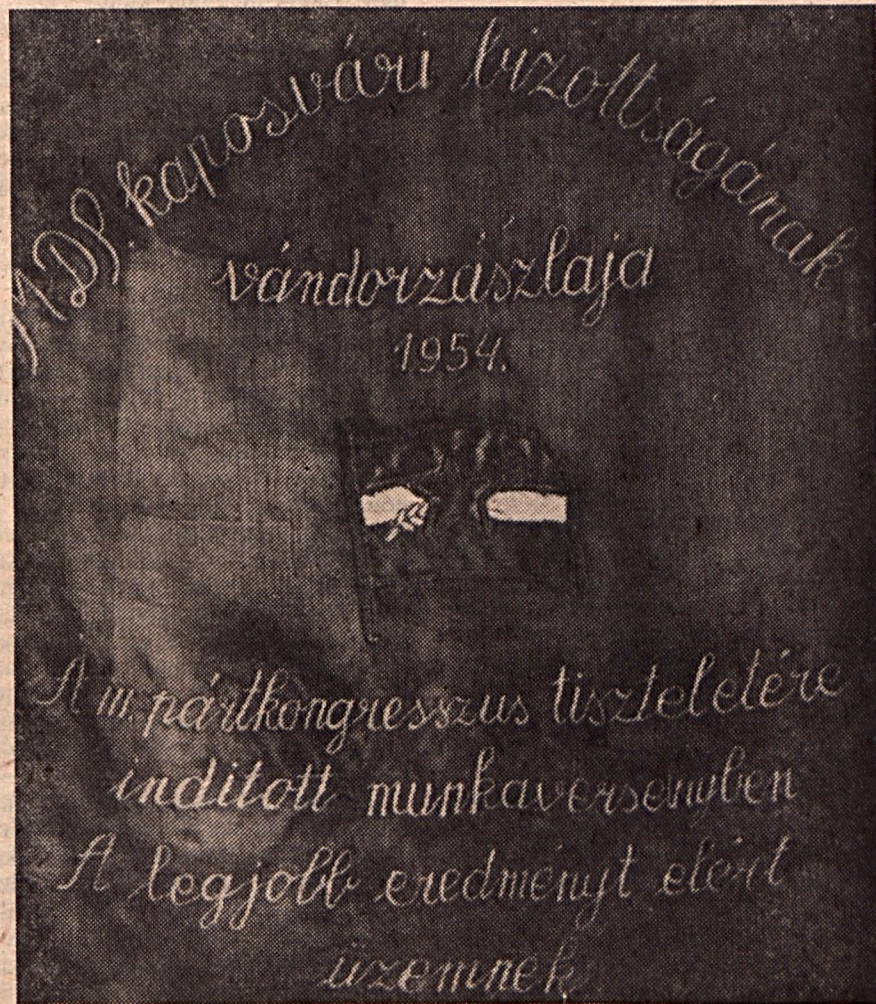 MDP. kaposvári bizottságának
vándorzászlaja
1954.
A III. pártkongresszus tiszteletére
indított munkaversenyben
A legjobb eredményt elért
üzemnek